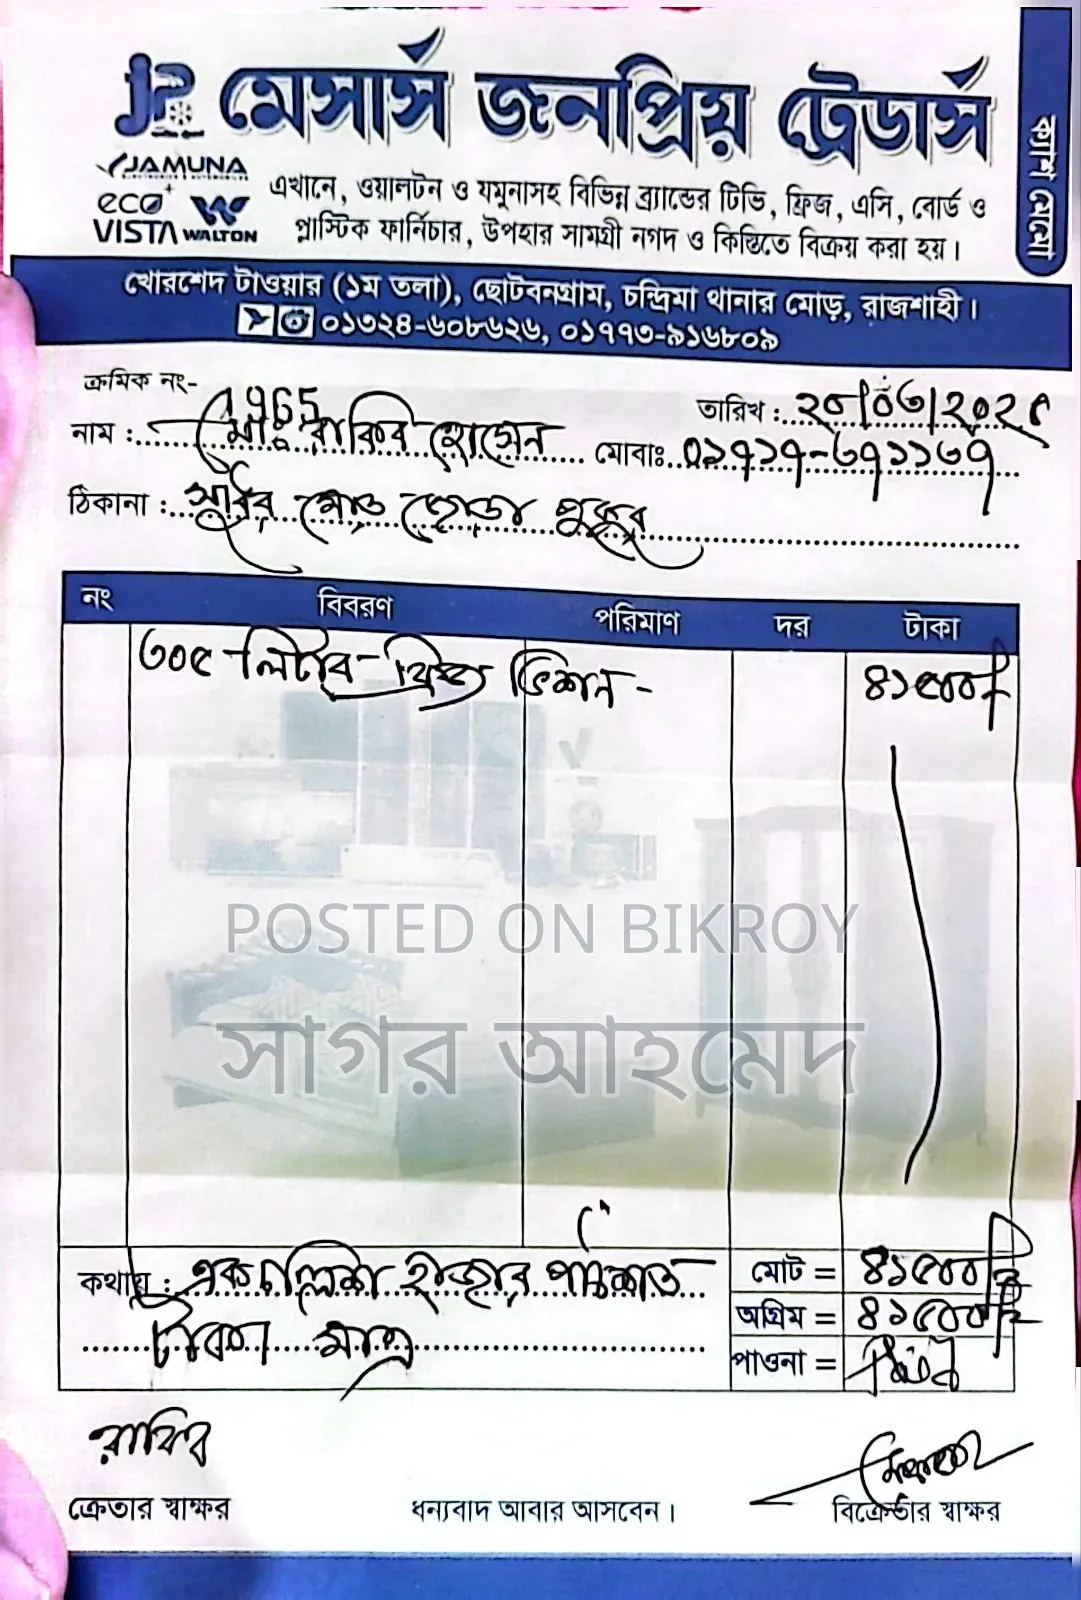 মেসার্স জনপ্রিয় ট্রেডার্স
ক্যাশ মেমো
JAMUNA
eco+
VISTA WALTON
এখানে, ওয়ালটন ও যমুনাসহ বিভিন্ন ব্র্যান্ডের টিভি, ফ্রিজ, এসি, বোর্ড ও
প্লাস্টিক ফার্নিচার, উপহার সামগ্রী নগদ ও কিস্তিতে বিক্রয় করা হয়।
খোরশেদ টাওয়ার (১ম তলা), ছোটবনগ্রাম, চন্দ্রিমা থানার মোড়, রাজশাহী।
০১৩২৪-৬০৮৬২৬, ০১৭৭৩-৯১৬৮০৯
ক্রমিক নং- 1965
তারিখ : ২০/০৩/২০২৫
নাম : মোঃ রাকিব হোসেন মোবাঃ ০১৭১৭-৩৭১১৩৭
ঠিকানা : মোড়
নং বিবরণ পরিমাণ দর টাকা
৩০৫ লিটার ফ্রিজ ভিশন - ৪১৫০০/-
POSTED ON BIKROY
সাগর আহমেদ
কথায় : একচল্লিশ হাজার পাঁচশত
টাকা মাত্র
মোট = ৪১৫০০/-
অগ্রিম = ৪১৫০০/-
পাওনা =
রাকিব
ক্রেতার স্বাক্ষর ধন্যবাদ আবার আসবেন। বিক্রেতার স্বাক্ষর